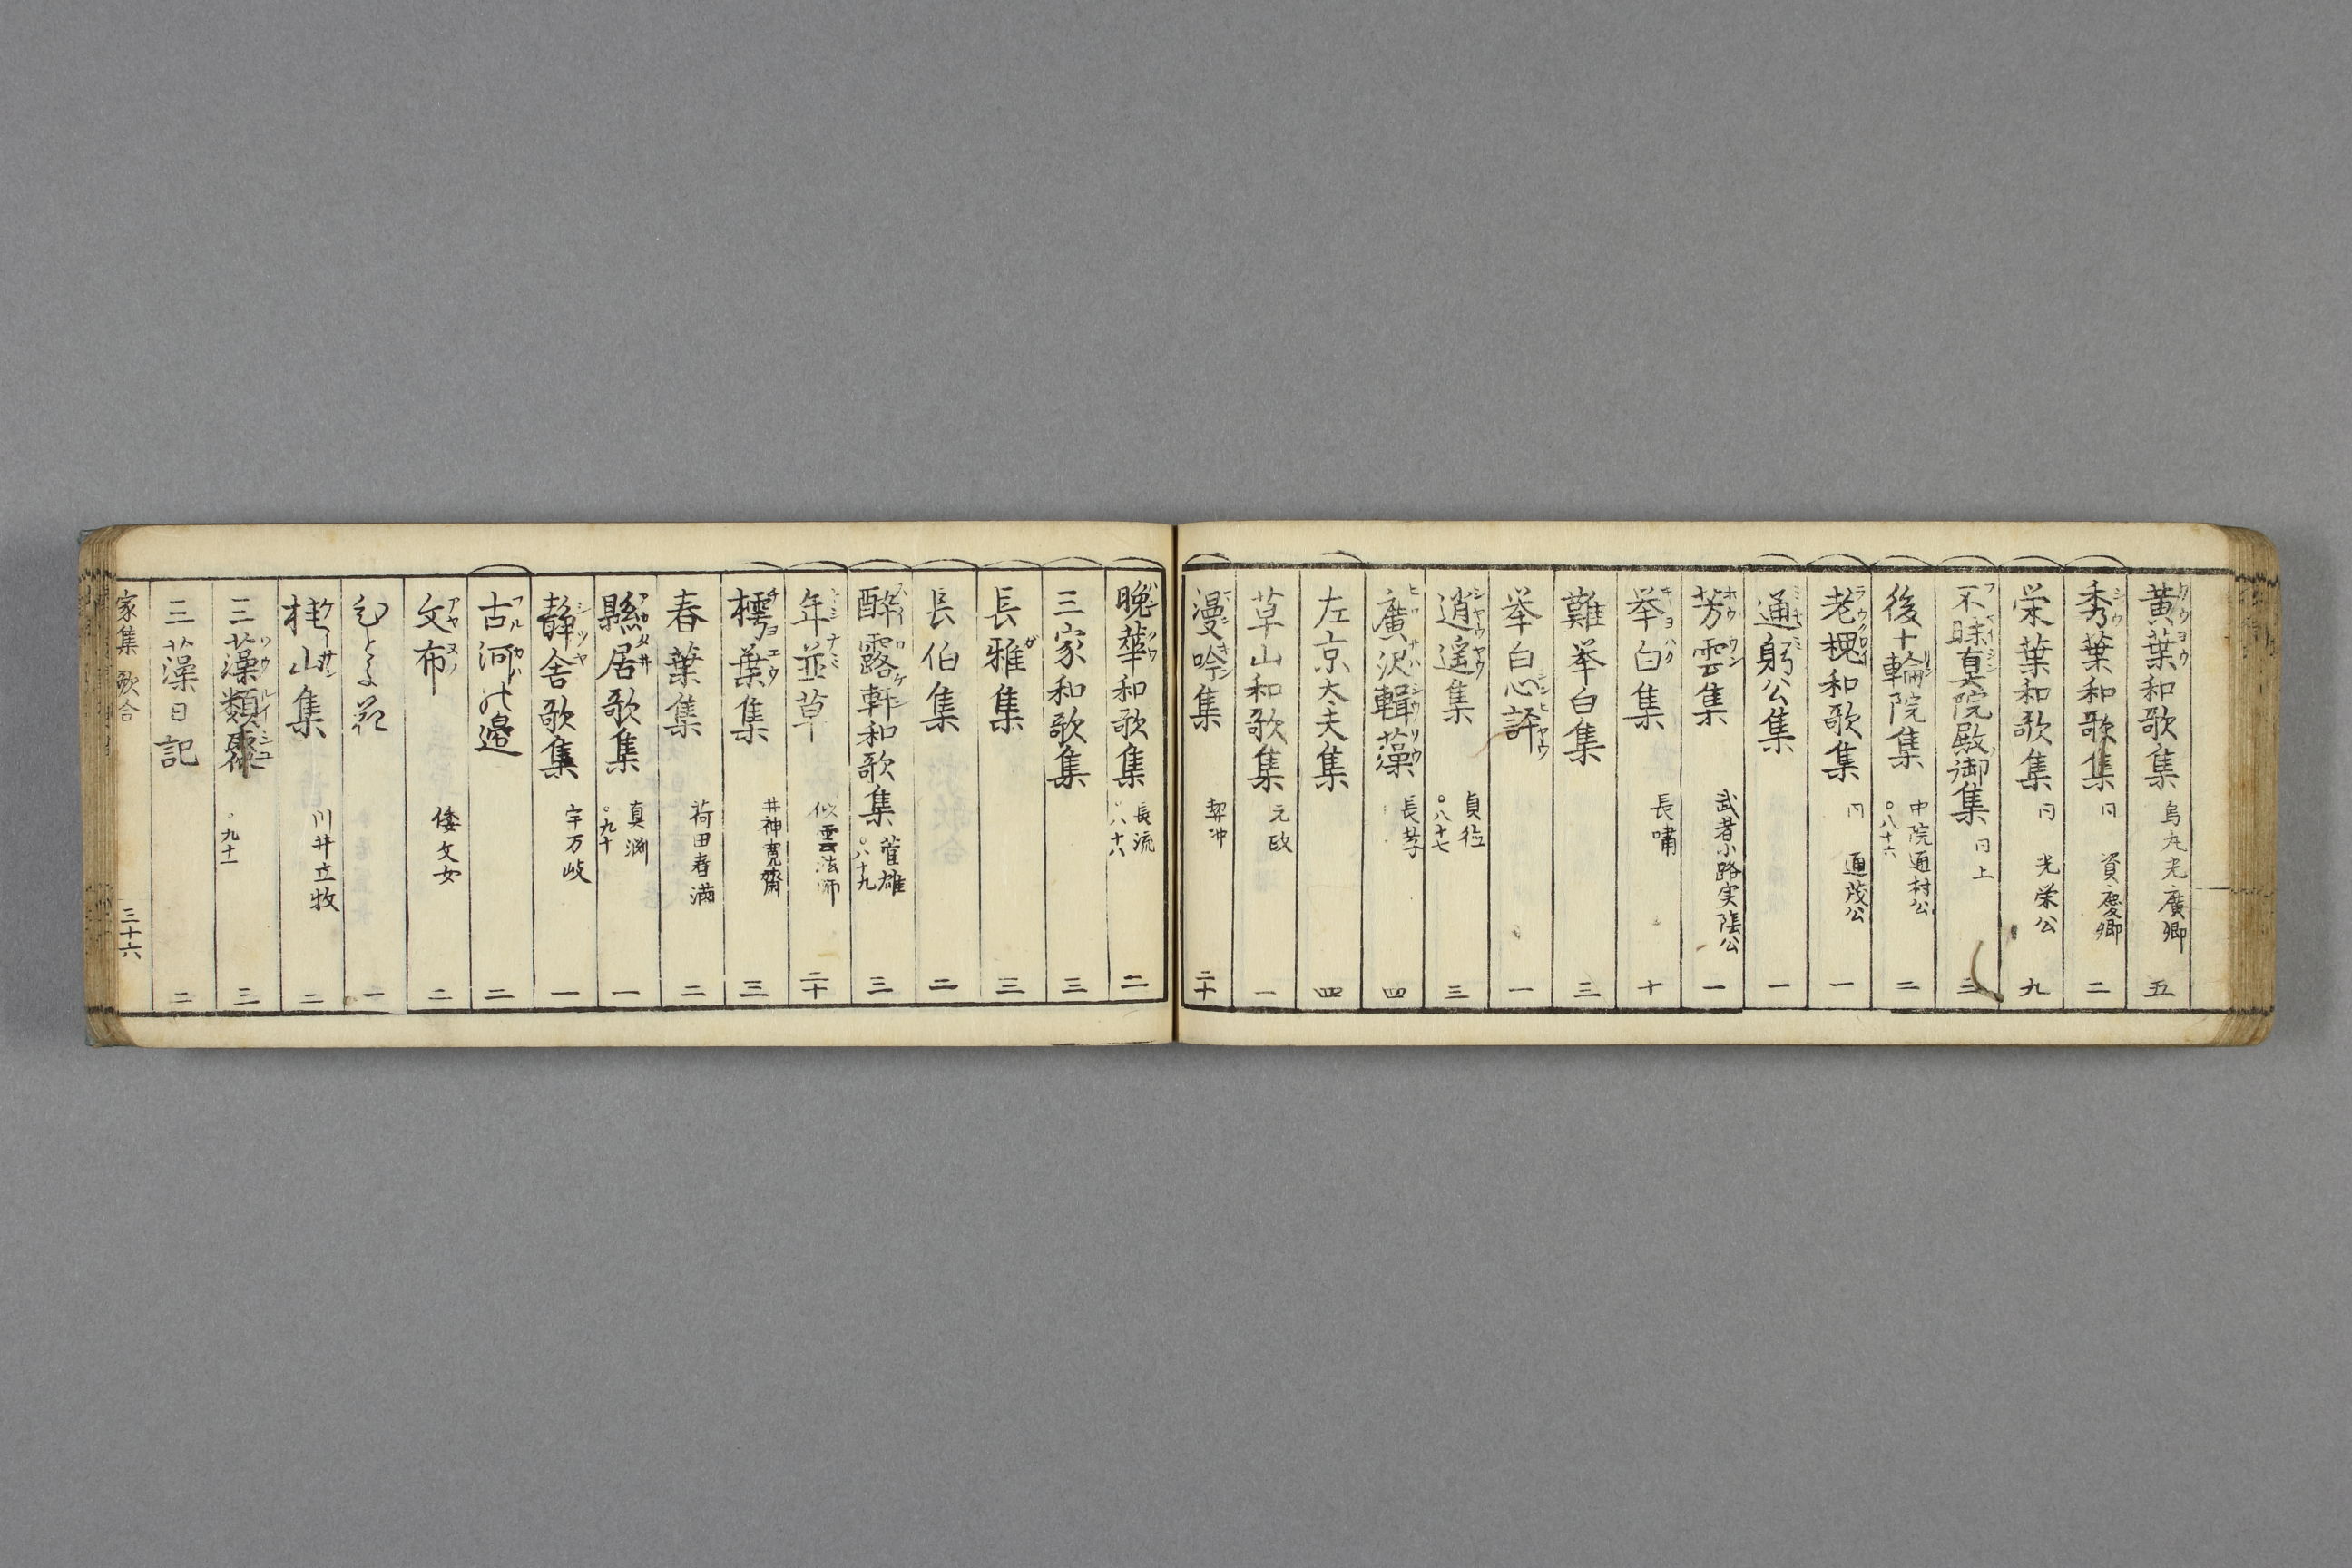 黄葉和歌集 烏丸光廣卿 五
秀葉和歌集 同 資慶卿 二
栄葉和歌集 同 光栄公 九
不昧真院殿御集 同上 三
後十輪院集 中院通村公 〇八十六 二
老槐和歌集 同 通茂公 一
通躬公集 一
芳雲集 武者小路実陰公 一
挙白集 長嘯 十
難挙白集 三
挙白心評 一
逍遥集 貞徳 〇八十七 三
廣沢輯藻 長孝 四
左京大夫集 四
草山和歌集 元政 一
漫吟集 契冲 二十
晩華和歌集 長流 〇八十八 二
三家和歌集 三
長雅集 三
長伯集 二
酔露軒和歌集 菅雄 〇八十九 三
年並草 似雲法師 二十
樗葉集 井神寛斎 三
春葉集 荷田春満 二
縣居歌集 真渕 〇九十 一
静舎歌集 宇万岐 一
古河の邉 二
文布 倭文女 二
桂山集 川井立牧 二
三藻類聚 〇九十一 三
三藻日記 二
家集 歌合 三十六